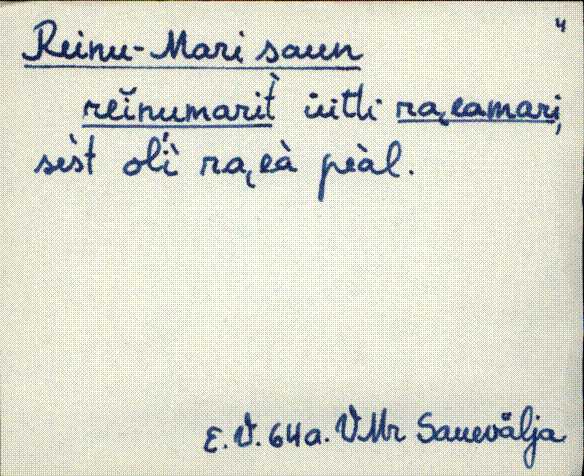 4
Reinu-Mari saun
reĭnumarìt̀ iuitli ra,eamari,
sèst olì ra,eà peàl.
E.V. 64a. VMr Sauevälja